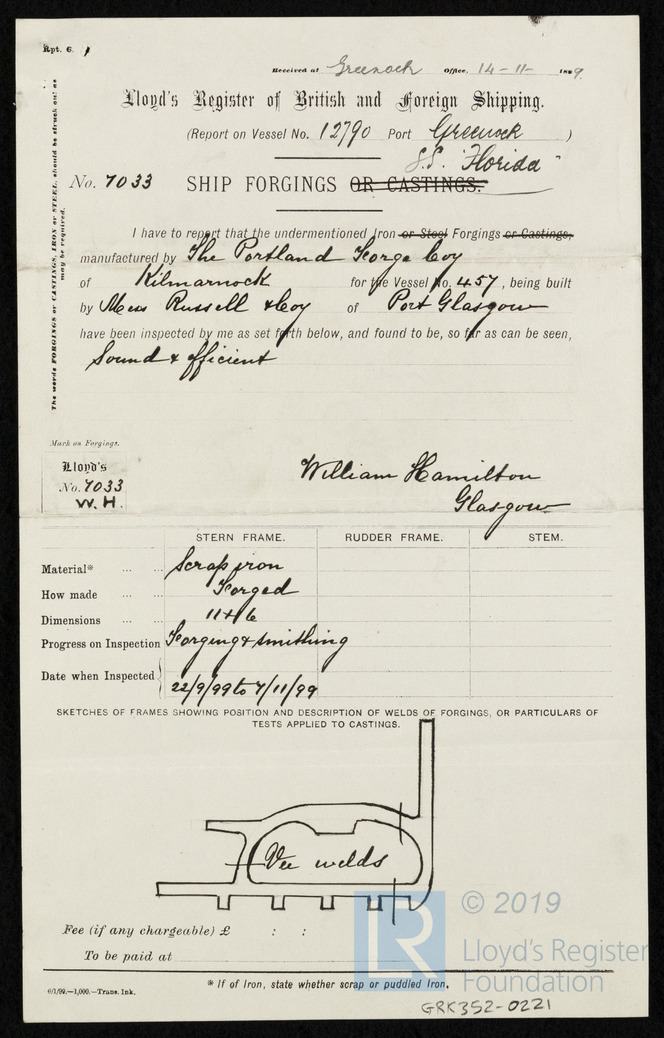 Rpt. 6.
Received at Greenock Office, 14-11- 1899
Lloyd's Register of British and Foreign Shipping.
(Report on Vessel No. 12790 Port Greenock )
S.S. "Florida"
No. 7033 SHIP FORGINGS OR CASTINGS.
The words FORGINGS or CASTINGS, IRON or STEEL, should be struck out as
may be required.
I have to report that the undermentioned Iron or Steel Forgings or Castings,
manufactured by The Portland Forge Coy
of Kilmarnock for the Vessel No. 457, being built
by Mess Russell & Coy of Port Glasgow
have been inspected by me as set forth below, and found to be, so far as can be seen,
Sound & efficient
Mark on Forgings.
Lloyd's
No. 7033
W.H.
William Hamilton
Glasgow
STERN FRAME. RUDDER FRAME. STEM.
Material* ... ... Scrap iron
How made ... Forged
Dimensions ... ... 11 + 6
Progress on Inspection Forging & smithing
Date when Inspected 22/9/99 to 7/11/99
SKETCHES OF FRAMES SHOWING POSITION AND DESCRIPTION OF WELDS OF FORGINGS, OR PARTICULARS OF
TESTS APPLIED TO CASTINGS.
Vee welds
Fee (if any chargeable) £ : :
To be paid at
* If of Iron, state whether scrap or puddled Iron.
6/1/99.—1,000.—Trans. Ink.
GRK352-0221
LR
© 2019
Lloyd's Register
Foundation